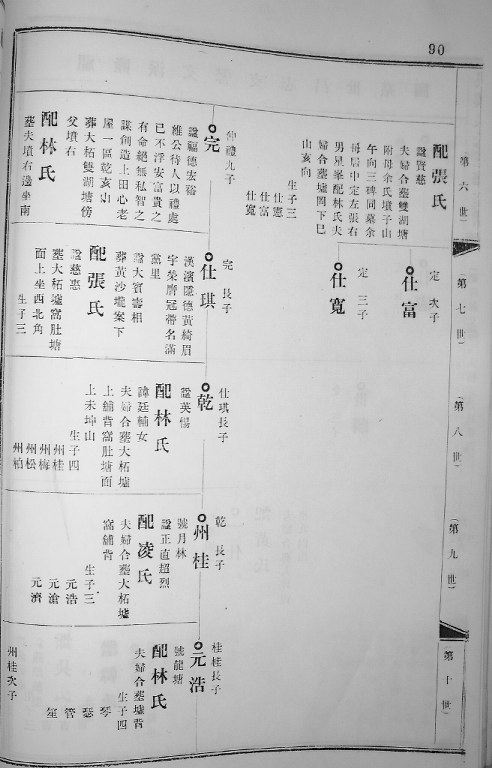 90
第六世
配張氏
諡賢慈
夫婦合塟雙湖塘
附母余氏墳子山
午向三碑同墓余
母居中定左張右
男星峯配林氏夫
婦合塟墟岡下巳
山亥向
生子三
仕憲
仕富
仕寬
仲禮九子
完
諡福德宏裕
維公待人以禮處
已不浮安富貴之
有命絕無私智之
謀創造上田心老
屋一區乾亥山
葬大柘雙湖塘傍
父墳右
配林氏
塟夫墳右邊坐南
第七世
定 次子
仕富
定 三子
仕寬
完 長子
仕琪
漢濱隱德黃綺眉
宇榮膺冠帶名滿
黨里
諡大賓審相
葬黃沙壠案下
配張氏
諡慈惠
塟大柘墟窩肚塘
面上坐西北角
生子三
第八世
仕琪長子
乾
諡英惕
配林氏
諱廷輔女
夫婦合塟大柘墟
上舖背窩肚塘面
上未坤山
生子四
州桂
州梅
州松
州柏
第九世
乾 長子
州桂
號月林
諡正直超烈
配凌氏
夫婦合塟大柘墟
窩舖背
生子三
元浩
元滄
元濟
第十世
桂桂長子
元浩
號龍塘
配林氏
夫婦合塟墟背
生子四
琴
瑟
管
笙
州桂次子